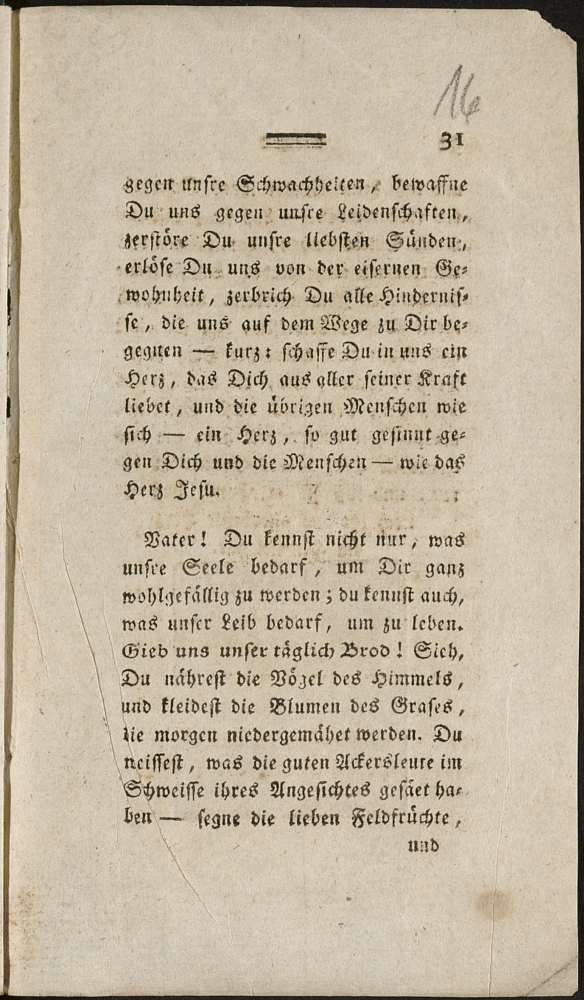 16
31
gegen unsre Schwachheiten, bewaffne
Du uns gegen unsre Leidenschaften,
zerstöre Du unsre liebsten Sünden,
erlöse Du uns von der eisernen Ge-
wohnheit, zerbrich Du alle Hindernis-
se, die uns auf dem Wege zu Dir be-
gegnen — kurz: schaffe Du in uns ein
Herz, das Dich aus aller seiner Kraft
liebet, und die übrigen Menschen wie
sich — ein Herz, so gut gesinnt ge-
gen Dich und die Menschen — wie das
Herz Jesu.
Vater! Du kennst nicht nur, was
unsre Seele bedarf, um Dir ganz
wohlgefällig zu werden; du kennst auch,
was unser Leib bedarf, um zu leben.
Gieb uns unser täglich Brod! Sieh,
Du nährest die Vögel des Himmels,
und kleidest die Blumen des Grases,
die morgen niedergemähet werden. Du
weissest, was die guten Ackersleute im
Schweisse ihres Angesichtes gesäet ha-
ben — segne die lieben Feldfrüchte,
und